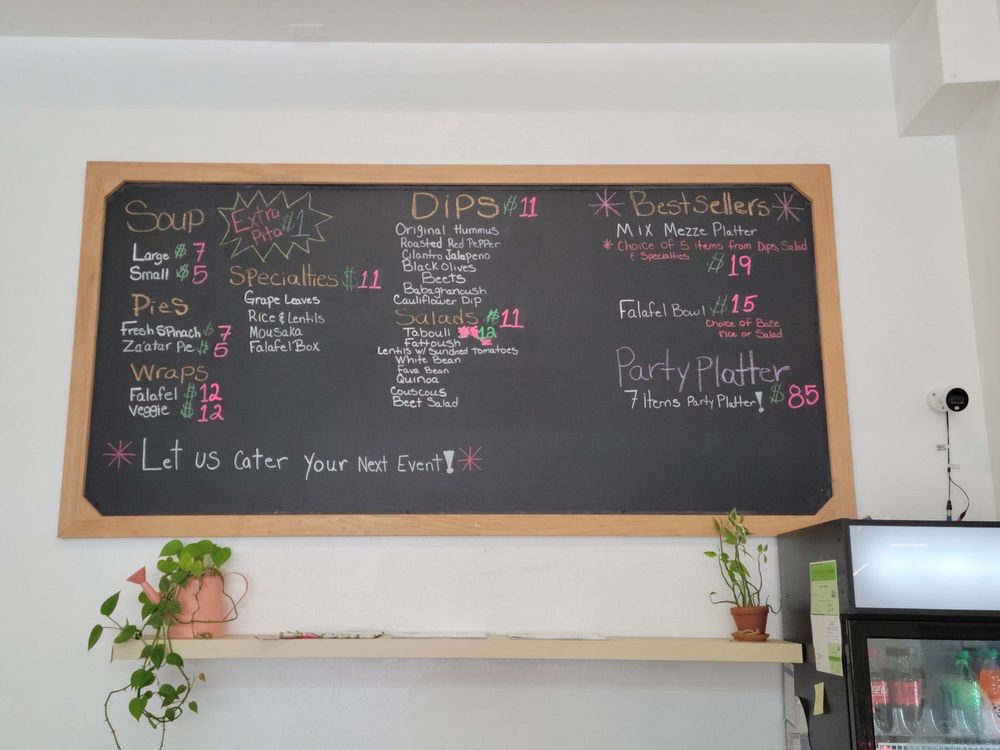 Soup
Large $7
Small $5
Pies
Fresh Spinach $7
Za'atar Pie $5
Wraps
Falafel $12
Veggie $12
Extra
Pita $1
Specialties $11
Grape Leaves
Rice & Lentils
Mousaka
Falafel Box
Dips $11
Original Hummus
Roasted Red Pepper
Cilantro Jalapeno
Black Olives
Beets
Babaghanoush
Cauliflower Dip
Salads $11
Tabouli 12
Fattoush
Lentils w/ Sundried Tomatoes
White Bean
Fava Bean
Quinoa
Couscous
Beet Salad
* Best Sellers *
Mix Mezze Platter
* Choice of 5 items from Dips, Salad
& Specialties
$19
Falafel Bowl $15
Choice of Base
rice or Salad
Party Platter
7 Items Party Platter! $85
* Let us Cater Your Next Event! *